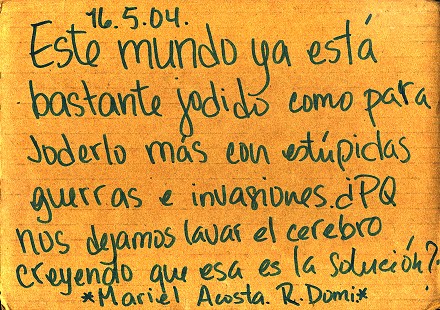 16.5.04.
Este mundo ya está
bastante jodido como para
Joderlo más con estúpidas
guerras e invasiones. ¿PQ
nos dejamos lavar el cerebro
creyendo que esa es la solución?
*Mariel Acosta. R. Domi*